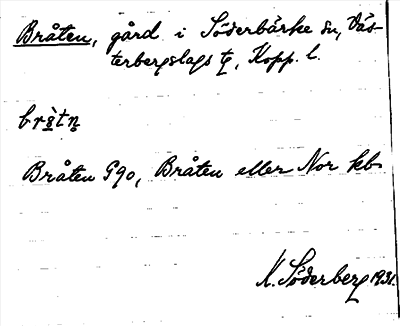 Bråten, gård i Söderbärke sn, Väs-
terbergslags tg, Kopp. l.
Bråten G90, Bråten eller Nor kb
K. Söderberg 1931.